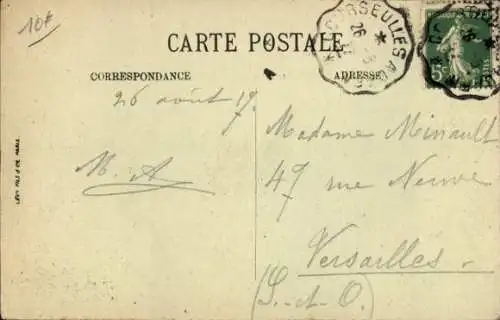 10f
CARTE POSTALE
CORRESPONDANCE
ADRESSE
COURSEULLES A
26
5c
26 août 17.
M. A
Madame Minault
47 rue Neuve
Versailles -
(S.-et-O.)
LÉVY FILS & CIE, PARIS.